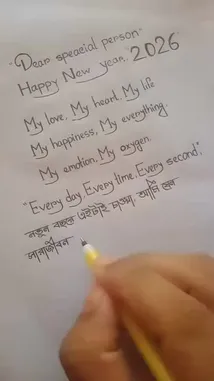 "Dear speacial person"
Happy New year, "2026"
My love, My heart, My life
My happiness, My everything.
My emotion, My oxygen.
"Every day Every time, Every second",
নতুন বছরে এইটাই চাওয়া, আমি যেন
সারাজীবন